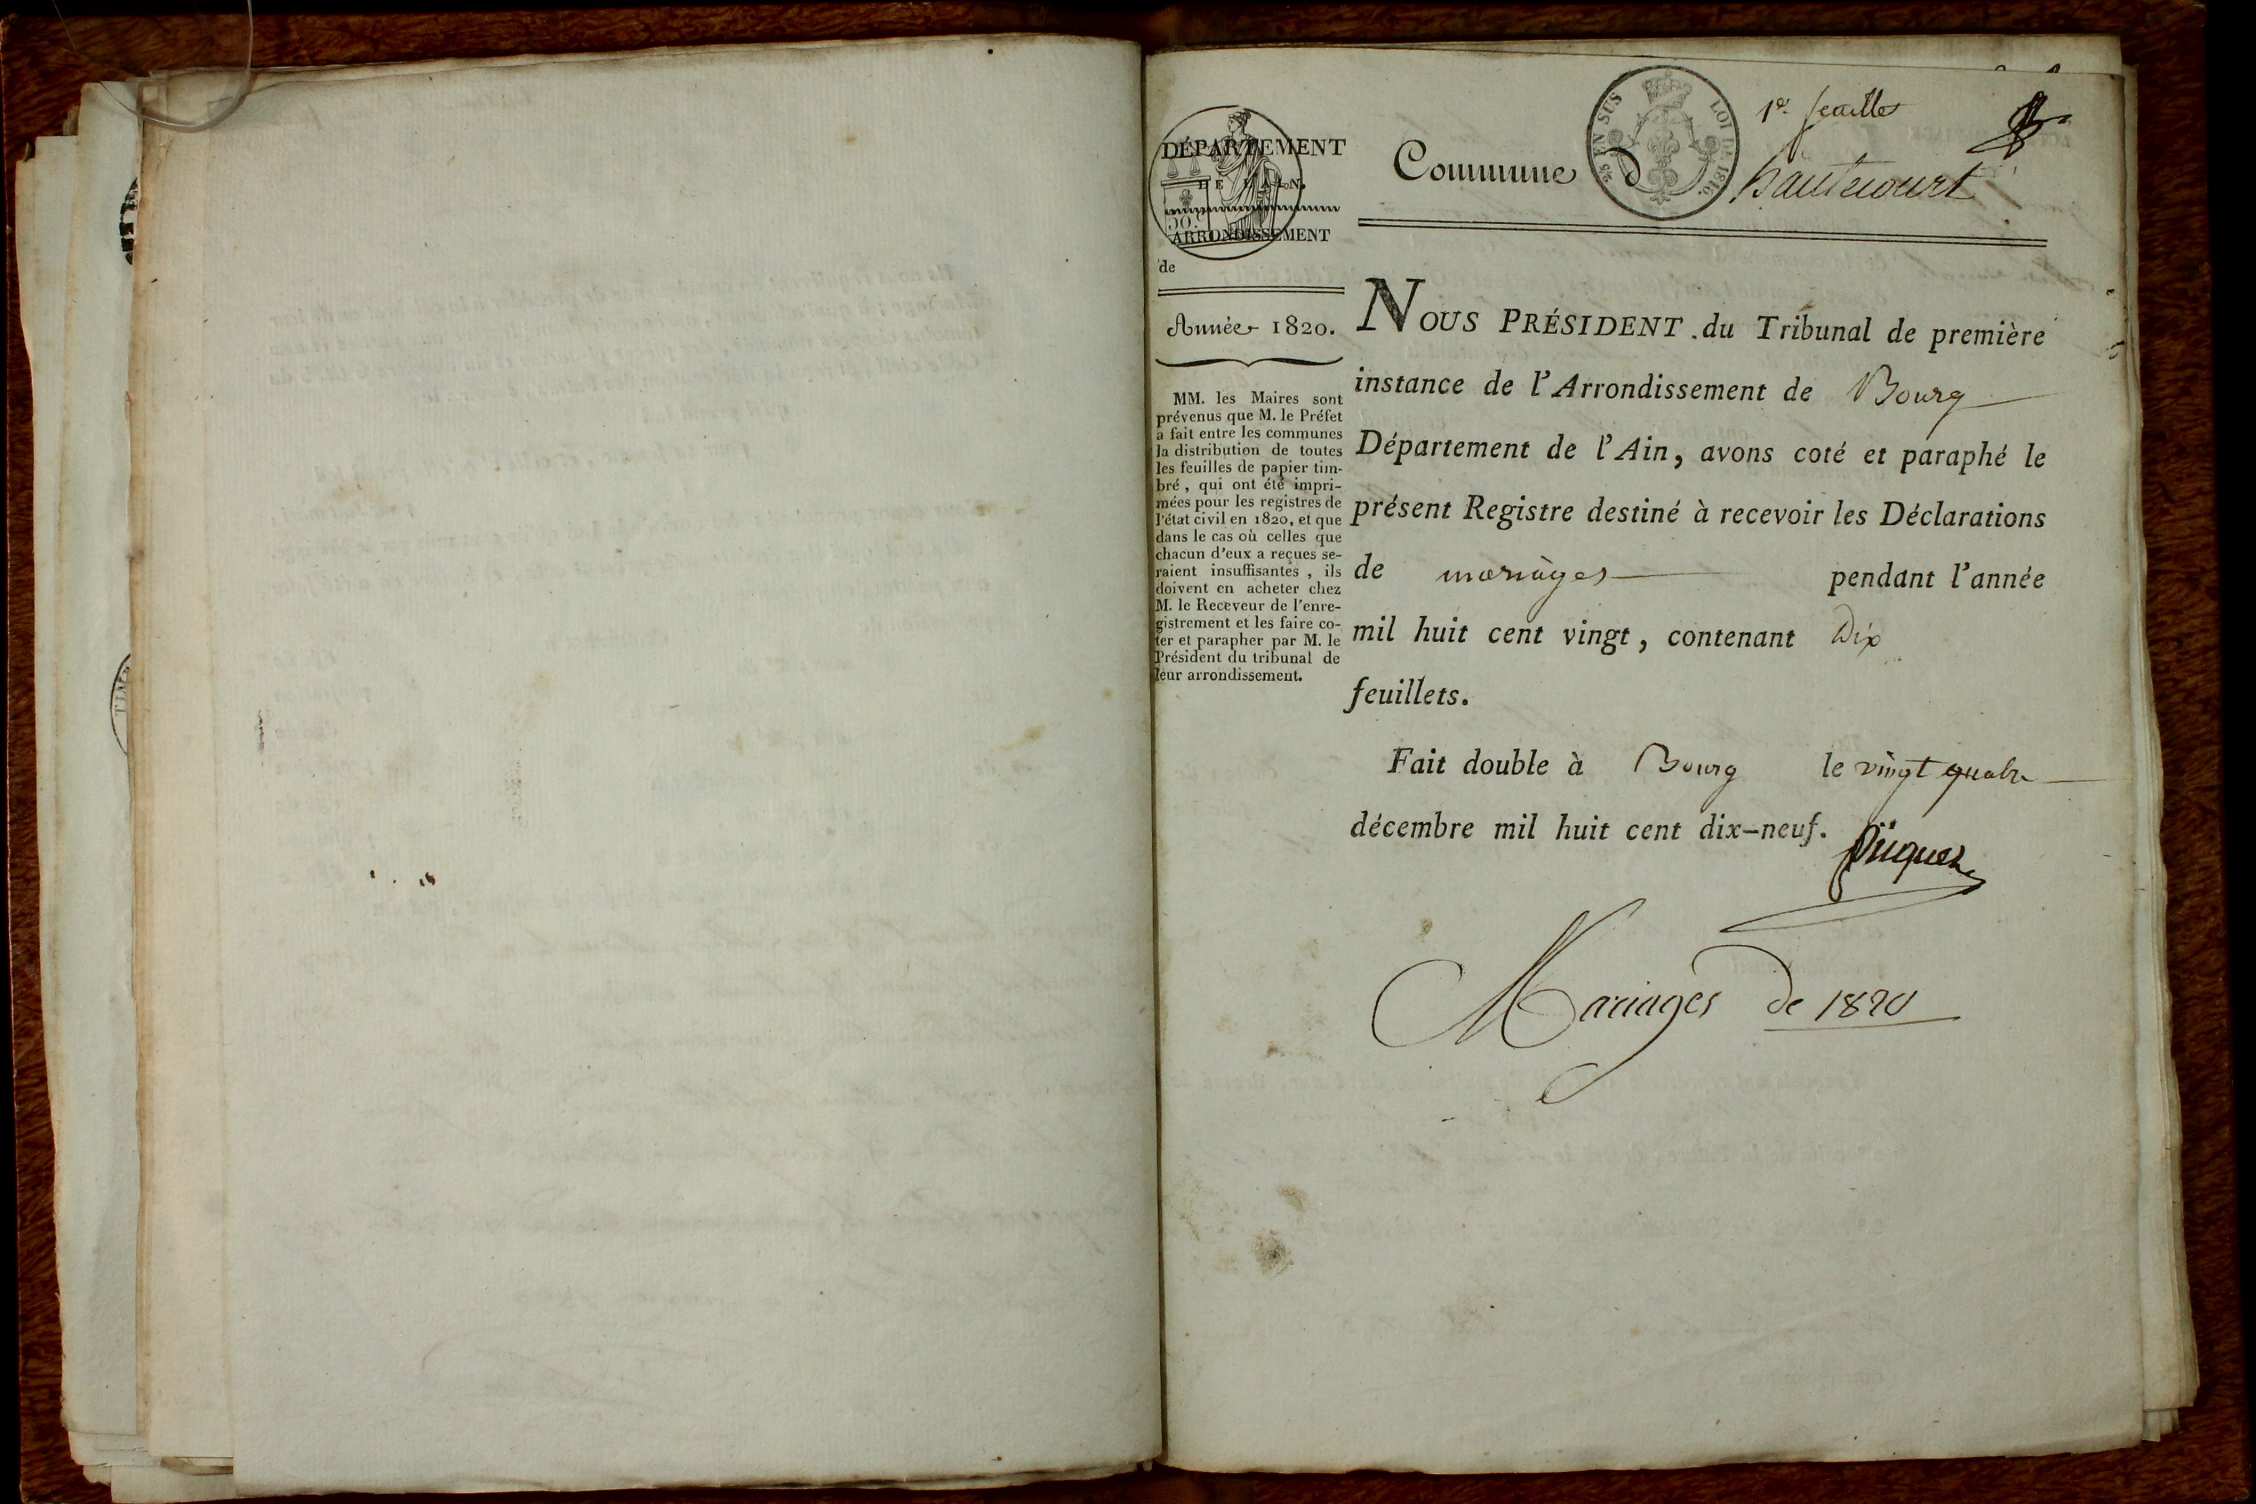 1er feuillet
DÉPARTEMENT
DE L'AIN.
ARRONDISSEMENT
de
25 EN SUS
LOI DE 1816.
Commune d hautecourt
Année 1820.
MM. les Maires sont
prévenus que M. le Préfet
a fait entre les communes
la distribution de toutes
les feuilles de papier tim-
bré, qui ont été impri-
mées pour les registres de
l'état civil en 1820, et que
dans le cas où celles que
chacun d'eux a reçues se-
raient insuffisantes, ils
doivent en acheter chez
M. le Receveur de l'enre-
gistrement et les faire co-
ter et parapher par M. le
Président du tribunal de
leur arrondissement.
NOUS PRÉSIDENT du Tribunal de première
instance de l'Arrondissement de Bourg
Département de l'Ain, avons coté et paraphé le
présent Registre destiné à recevoir les Déclarations
de mariages pendant l'année
mil huit cent vingt, contenant Dix
feuillets.
Fait double à Bourg le vingt quatre
décembre mil huit cent dix-neuf.
Mariages de 1820